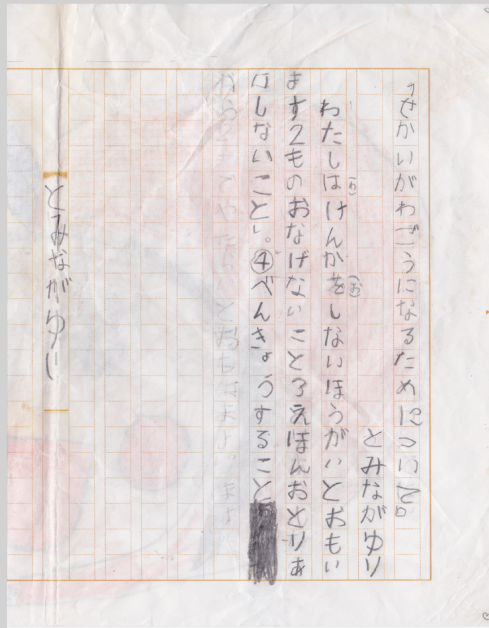 「せかいがわごうになるためにについて」
とみながゆり
わたしは(わ)けんかを(お)しないほうがいとおもい
ます2ものおなげないこと3えほんおとりあ
けしないこと」。④べんきょうすること
とみながゆり